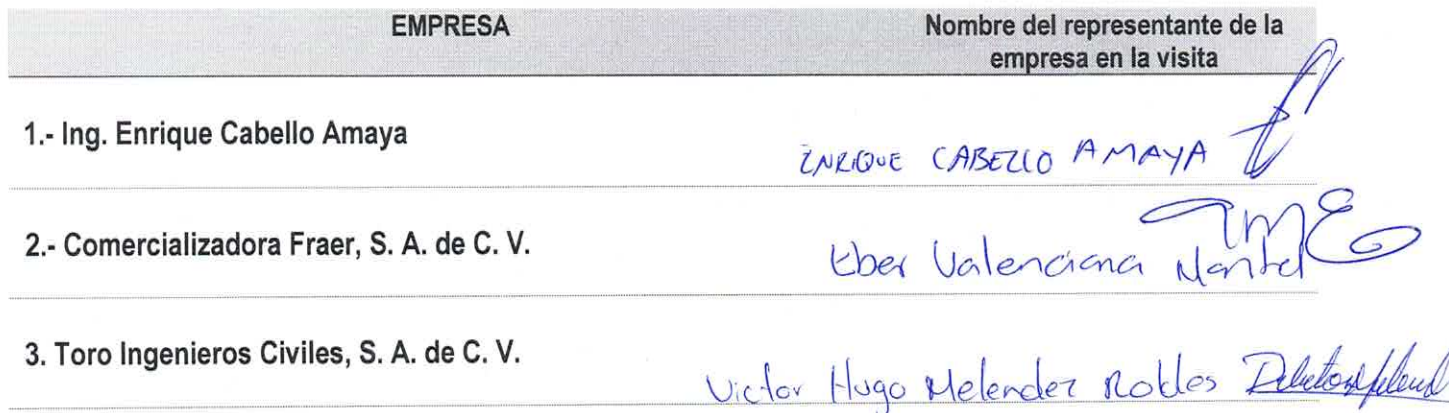 EMPRESA
Nombre del representante de la
empresa en la visita
1.- Ing. Enrique Cabello Amaya
ENRIQUE CABELLO AMAYA
2.- Comercializadora Fraer, S. A. de C. V.
Eber Valenciana
3. Toro Ingenieros Civiles, S. A. de C. V.
Victor Hugo Melendez Robles